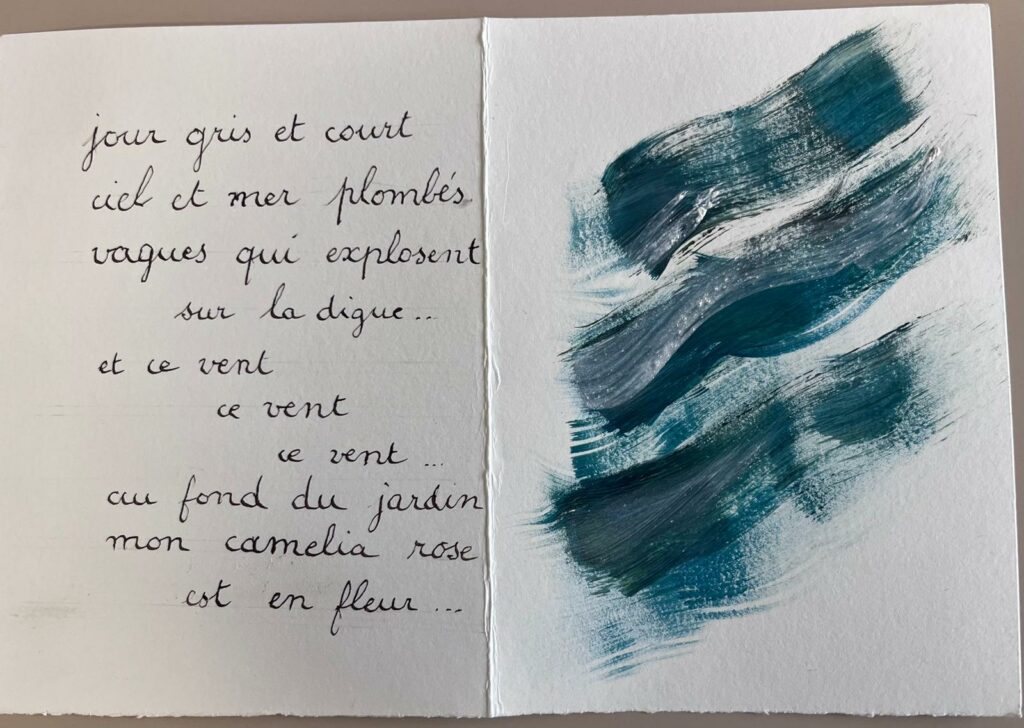 jour gris et court
ciel et mer plombés
vagues qui explosent
sur la digue..
et ce vent
ce vent
ce vent ...
au fond du jardin
mon camelia rose
est en fleur ...